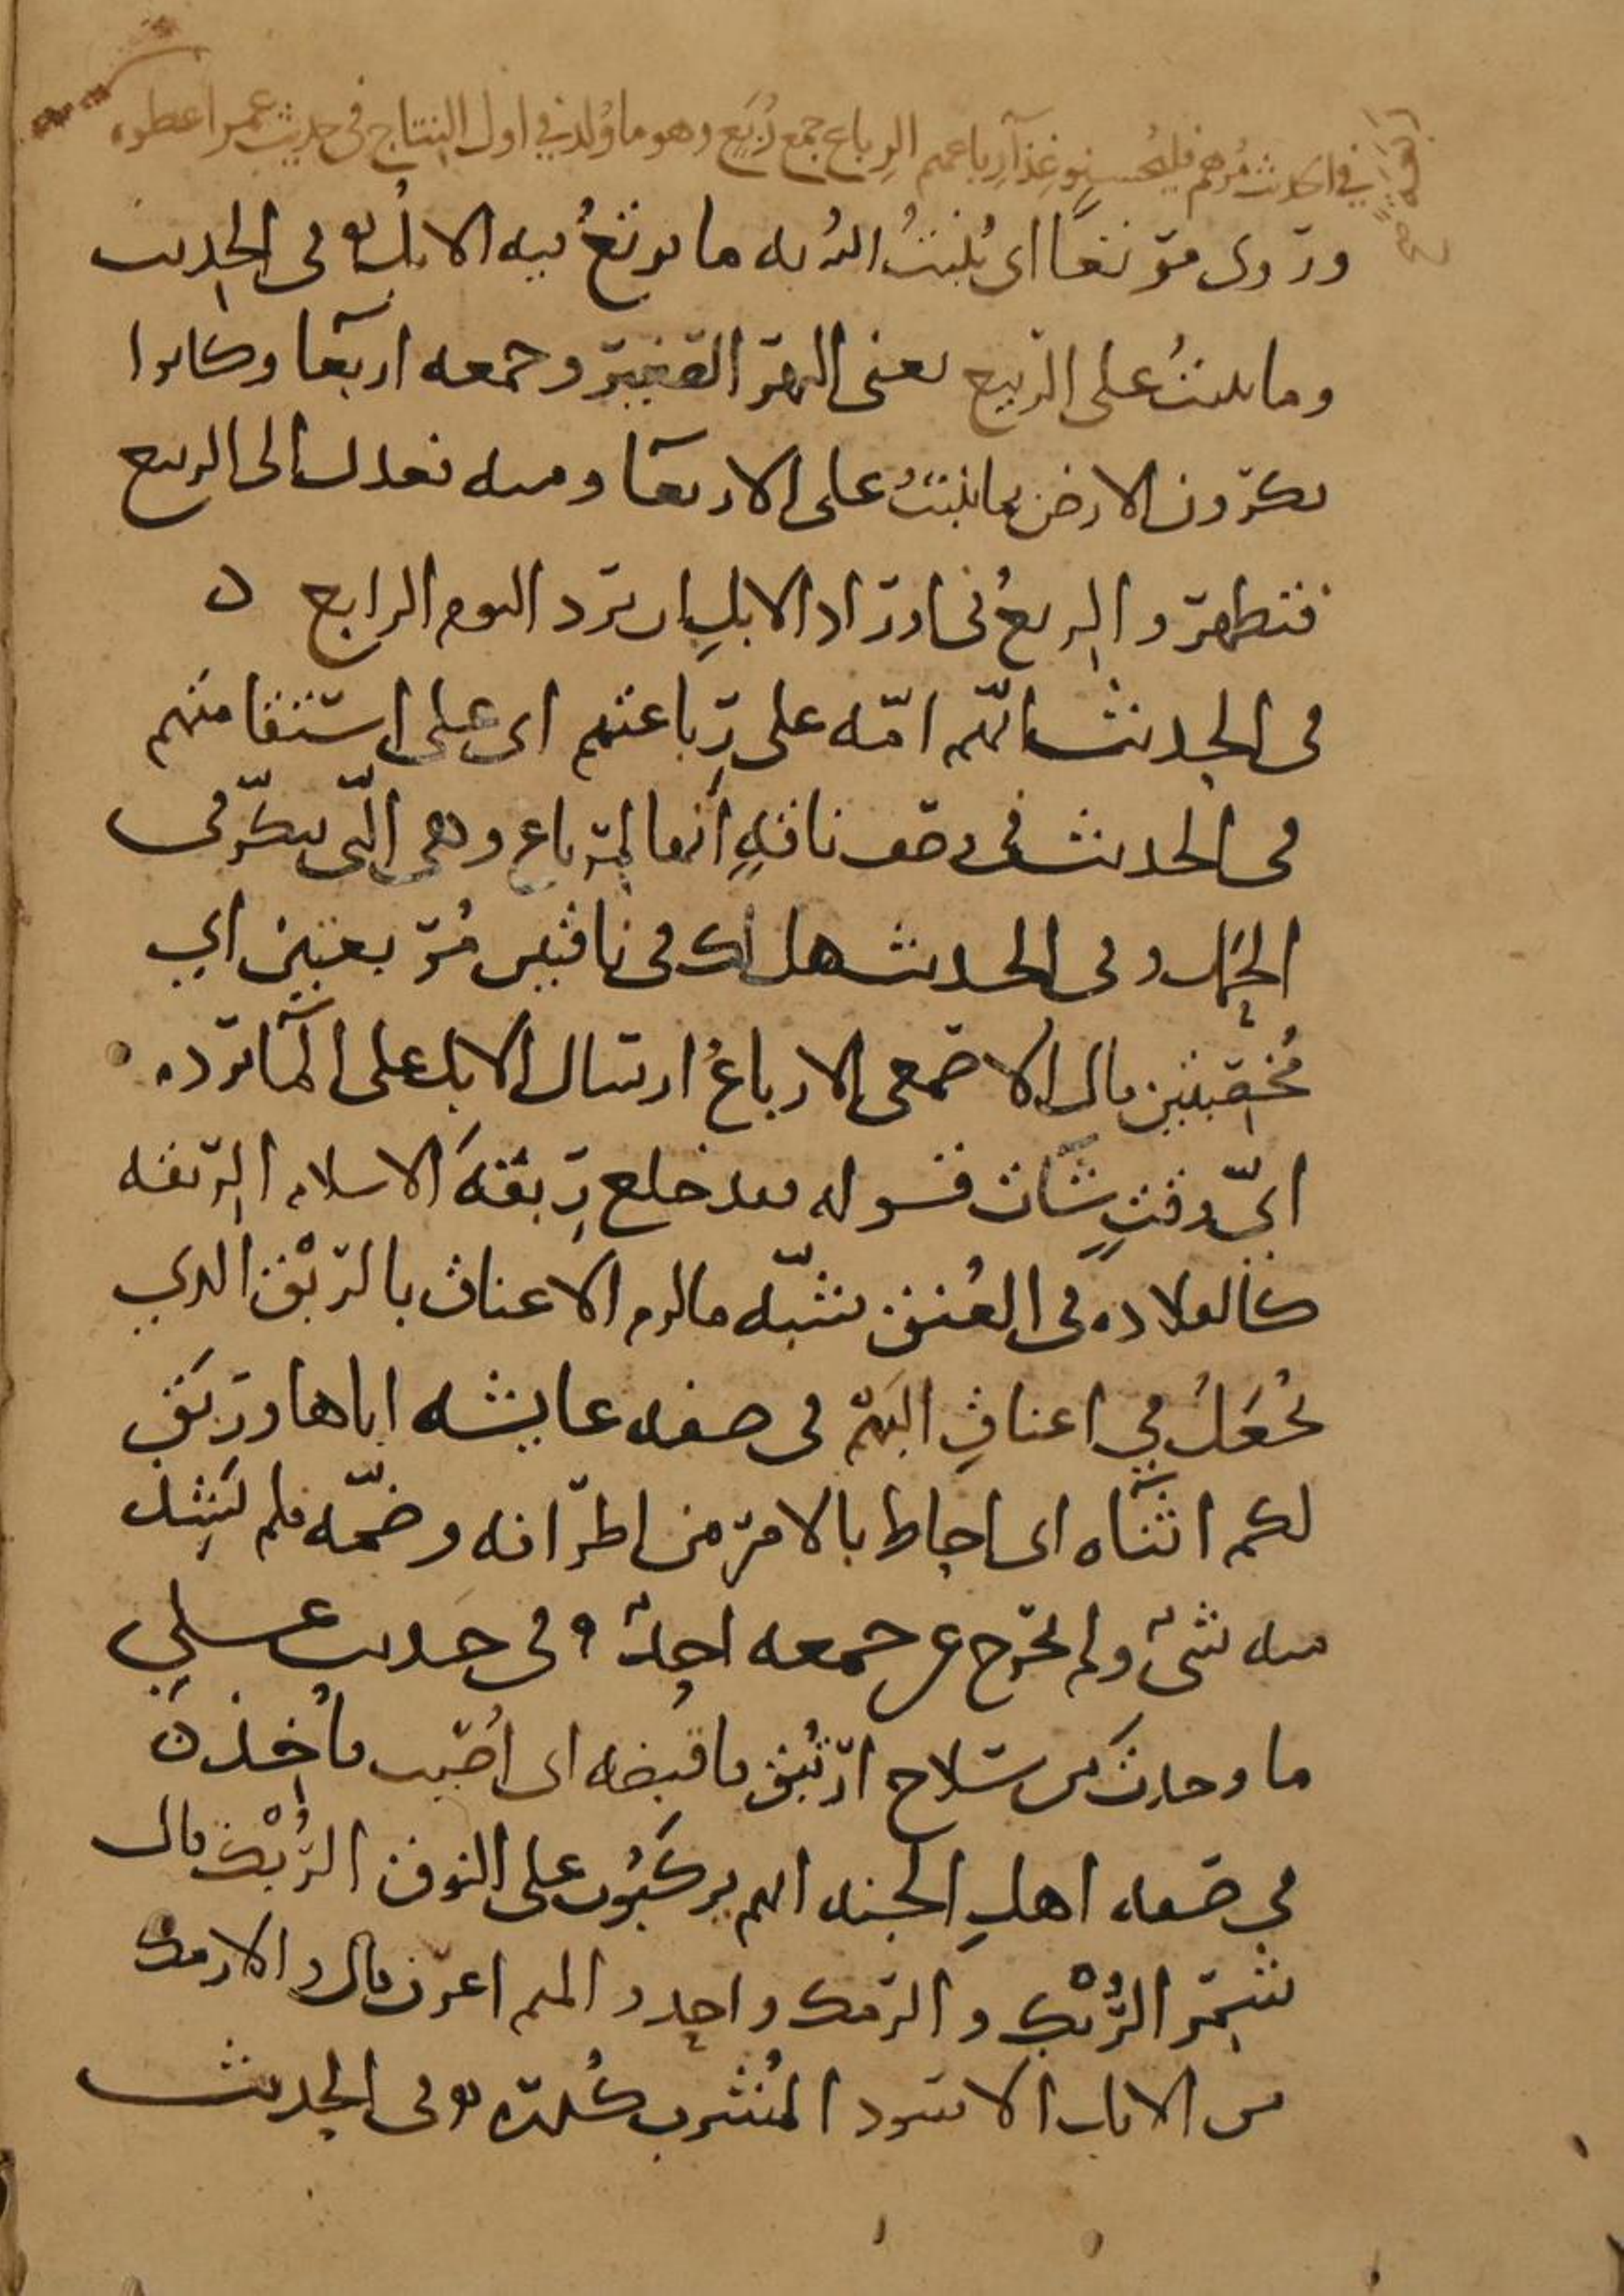 في الحديث مرهم فليحسنوا غذآ رباعهم الرباع جمع رُبَع وهو ما وُلد في اول النتاج في حديث عمر اعطوه
وروى مرتعًا اى يُنبتُ الله به ما يرتعُ فيه الابل وفى الحديث
وما ينبتُ على الربيع يعنى النهر الصغير وجمعه اربعآ وكانوا
يكرون الارض بما ينبتُ على الاربعآ ومنه فعدل الى الربيع
فتطهر والرِبعُ فى اوراد الابلِ ان ترد اليوم الرابع ه
فى الحديث انّهم امّه على رِباعتهم اى على استقامتهم
فى الحديث فى وصف ناقهٍ انها لمرباع وهى الّتى تبكّر فى
الحمل وفى الحديث هل لك فى ناقتين مُربعتين اي
مُخصبتين قال الاصمعى الارباعُ ارسال الابل على المآ ترده
ايّ وقتٍ شآت قوله فقد خلع رِبقهَ الاسلام الرِبقه
كالقلاده فى العُنق شبّه ما لزم الاعناق بالرِبْق الذي
يُجعَلُ في اعناقِ البَهْم فى صفه عايشه اباها ورَبَق
لكم اثنآه اى احاط بالامر من اطرافه وضمّه فلم يَشِذ
منه شىء ولم يخرج عن جمعه احدٌ وفى حديث على
ما وجدتَ من سلاح ارتُبق فاقبضه اى اُصيب فاُخذ ه
في صفه اهلِ الجنه انهم يركبُون على النوق الرُبْك قال
شَمِر الرُبْك والرمك واحد والميم اعرف قال والارمك
من الابل الاسود المُشرب كُدره وفى الحديث